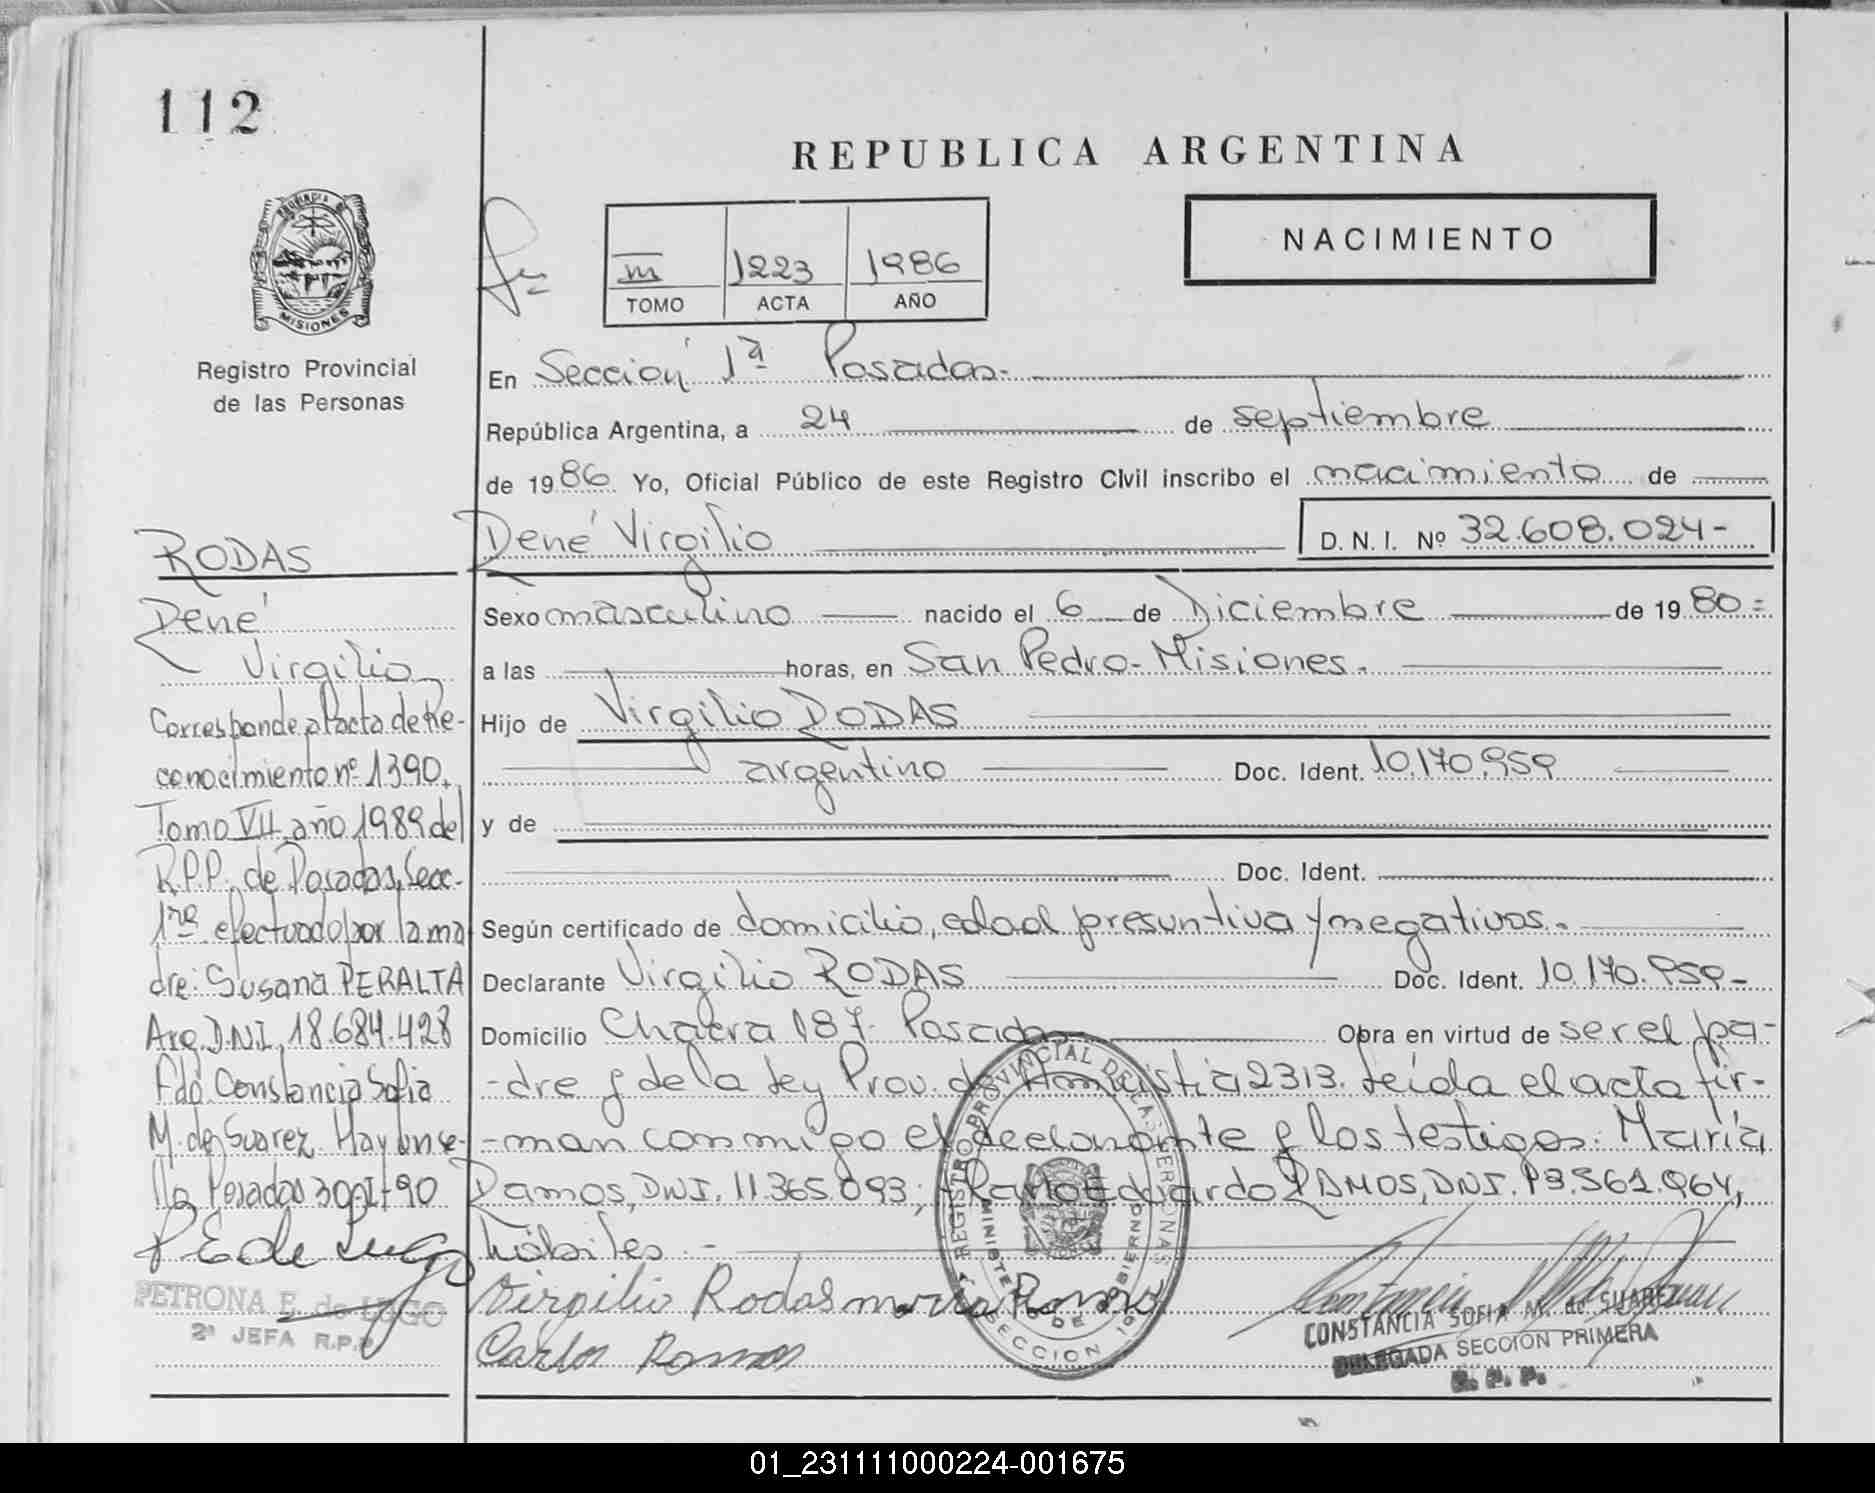 112
REPUBLICA ARGENTINA
NACIMIENTO
III 1223 1986
TOMO ACTA AÑO
PROVINCIA DE
MISIONES
Registro Provincial
de las Personas
En Sección 1ª Posadas.
República Argentina, a 24 de septiembre
de 1986 Yo, Oficial Público de este Registro Civil inscribo el nacimiento de
René Virgilio D.N.I. Nº 32.608.024-
Sexo masculino nacido el 6 de Diciembre de 1980=
a las horas, en San Pedro-Misiones.
Hijo de Virgilio RODAS
argentino Doc. Ident. 10.170.959
y de
Doc. Ident.
Según certificado de domicilio, edad presuntiva y negativos.
Declarante Virgilio RODAS Doc. Ident. 10.170.959-
Domicilio Chacra 187- Posadas Obra en virtud de ser el pa-
-dre y de la Ley Prov. de Amnistia 2313. Leída el acta fir-
-man conmigo el declarante y los testigos: María
Ramos, DNI. 11.365.093; Eduardo RAMOS, DNI.
hábiles.-
Virgilio Rodas Maria Ramos
Carlos Ramos
RODAS
René
Virgilio
Corresponde al acta de Re-
conocimiento nº 1390,
Tomo VII, año 1989 del
R.P.P. de Posadas, Secc.
1ra efectuado por la ma
dre: Susana PERALTA
Arg. D.N.I. 18.684.428
Fdo Constancia Sofia
M. de Suarez. Hay un se-
llo Posadas 30-I-90
P E de Lugo
PETRONA E. de LUGO
2ª JEFA R.P.P.
REGISTRO PROVINCIAL DE LAS PERSONAS
MINISTERIO DE GOBIERNO
SECCION 1ª
CONSTANCIA SOFIA M. de SUAREZ
DELEGADA SECCION PRIMERA
R. P. P.
01_231111000224-001675